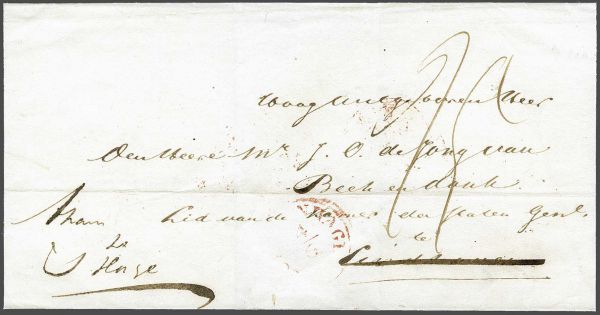 Hoog Welgeboren Heer
Den Heere Mr J. O. de Jong van
Beek en Donk
Lid van de Kamer der Staten Genl
te
thans
te
S Hage